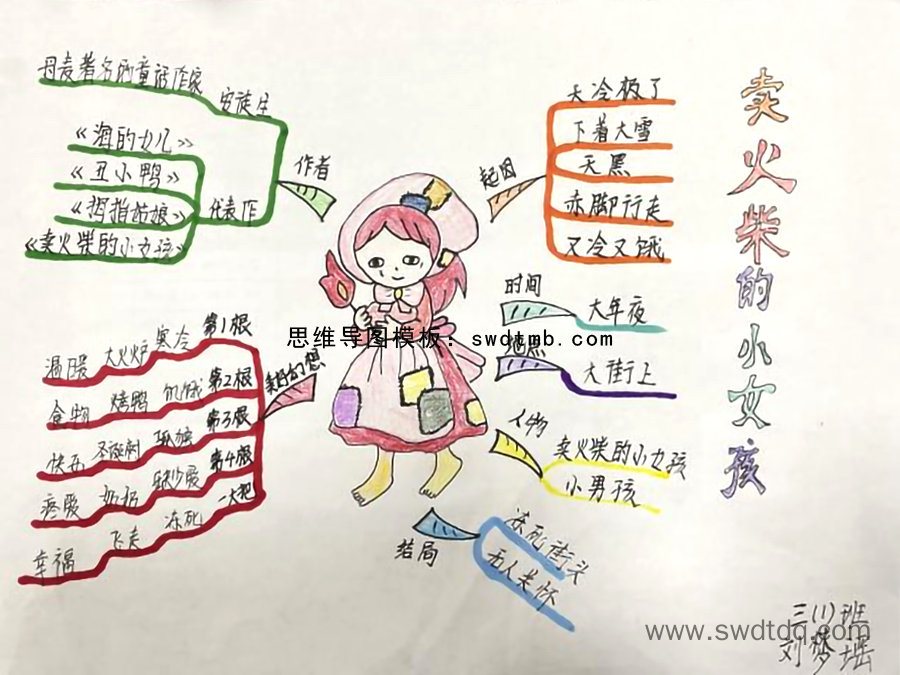 卖火柴的小女孩
丹麦著名的童话作家
安徒生
《海的女儿》
《丑小鸭》
《拇指姑娘》
《卖火柴的小女孩》
代表作
作者
起因
天冷极了
下着大雪
天黑
赤脚行走
又冷又饿
时间
大年夜
地点
大街上
人物
卖火柴的小女孩
小男孩
结局
冻死街头
无人关怀
美好幻想
温暖 大火炉 寒冷 第1根
食物 烤鸭 饥饿 第2根
快乐 圣诞树 孤独 第3根
疼爱 奶奶 缺少爱 第4根
幸福 飞走 冻死 一大把
思维导图模板：swdtmb.com
三(1)班
www.swdtdq.com
刘梦瑶